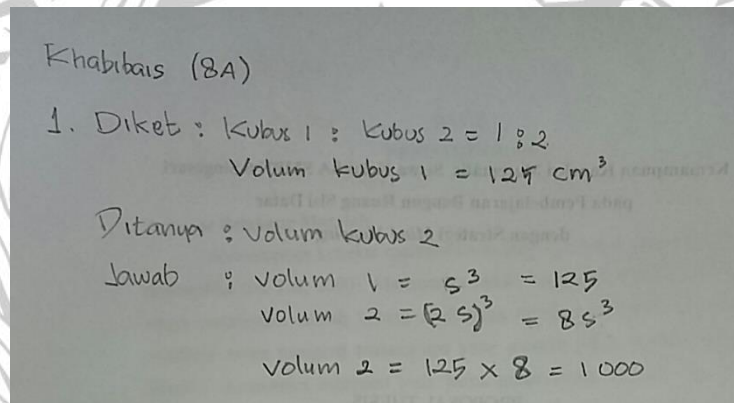 Khabibais (8A)
1. Diket : Kubus 1 : Kubus 2 = 1 : 2
Volum kubus 1 = 125 cm³
Ditanya : Volum kubus 2
Jawab : volum 1 = s³ = 125
volum 2 = (2 s)³ = 8s³
volum 2 = 125 x 8 = 1000